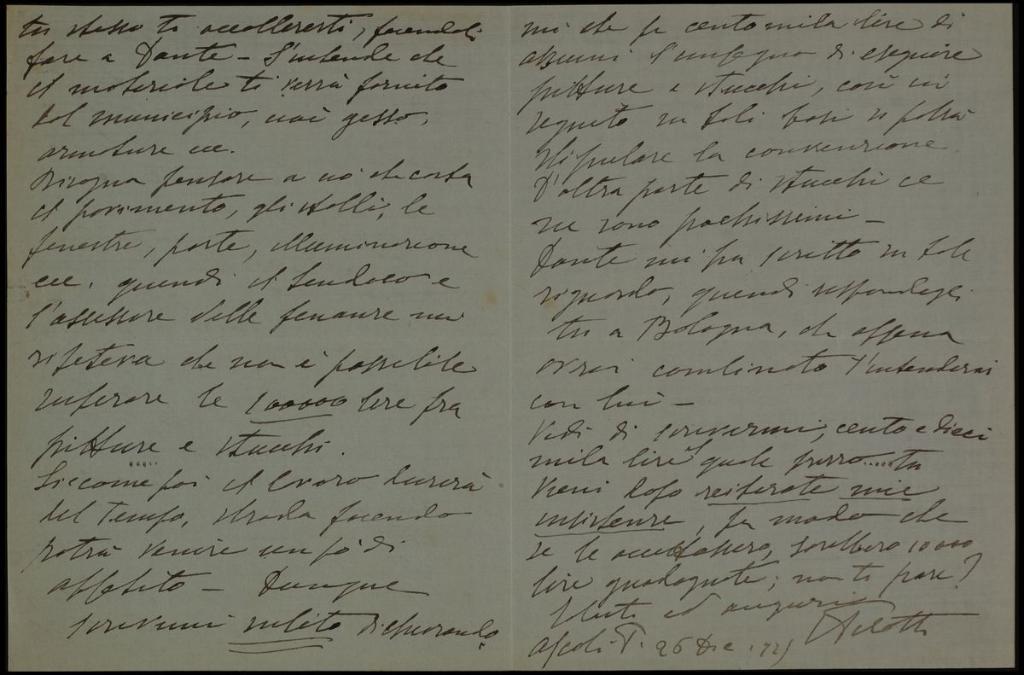 tu stesso ti accolleresti, facendoli
fare a Dante – S'intende che
il materiale ti verrà fornito
dal municipio, cioè gesso,
armature ecc.
Bisogna pensare a ciò che costa
il pavimento, gli stalli, le
finestre, porte, illuminazione
ecc. quindi il Sindaco e
l'assessore delle finanze mi
ripeteva che non è possibile
superare le 100000 lire fra
pitture e stucchi.
Siccome poi il lavoro durerà
del tempo, strada facendo
potrà venire un pò di
appetito – Dunque
scrivimi subito dichiarando
mi che per centomila lire di
assumi l'impegno di eseguire
pitture e stucchi, così in
seguito su tali basi si potrà
stipulare la convenzione.
D'altra parte di stucchi ce
ne sono pochissimi –
Dante mi ha scritto in tale
riguardo, quindi rispondegli
tu a Bologna, che appena
avrai combinato t'intenderai
con lui –
Vedi di scrivermi, cento e dieci
mila lire quale prezzo..... tu
vieni dopo reiterate mie
insistenze, in modo che
se le accettassero, sarebbero 10000
lire guadagnate; non ti pare?
Saluti ed auguri
Ascoli P. 26 Dic. 925